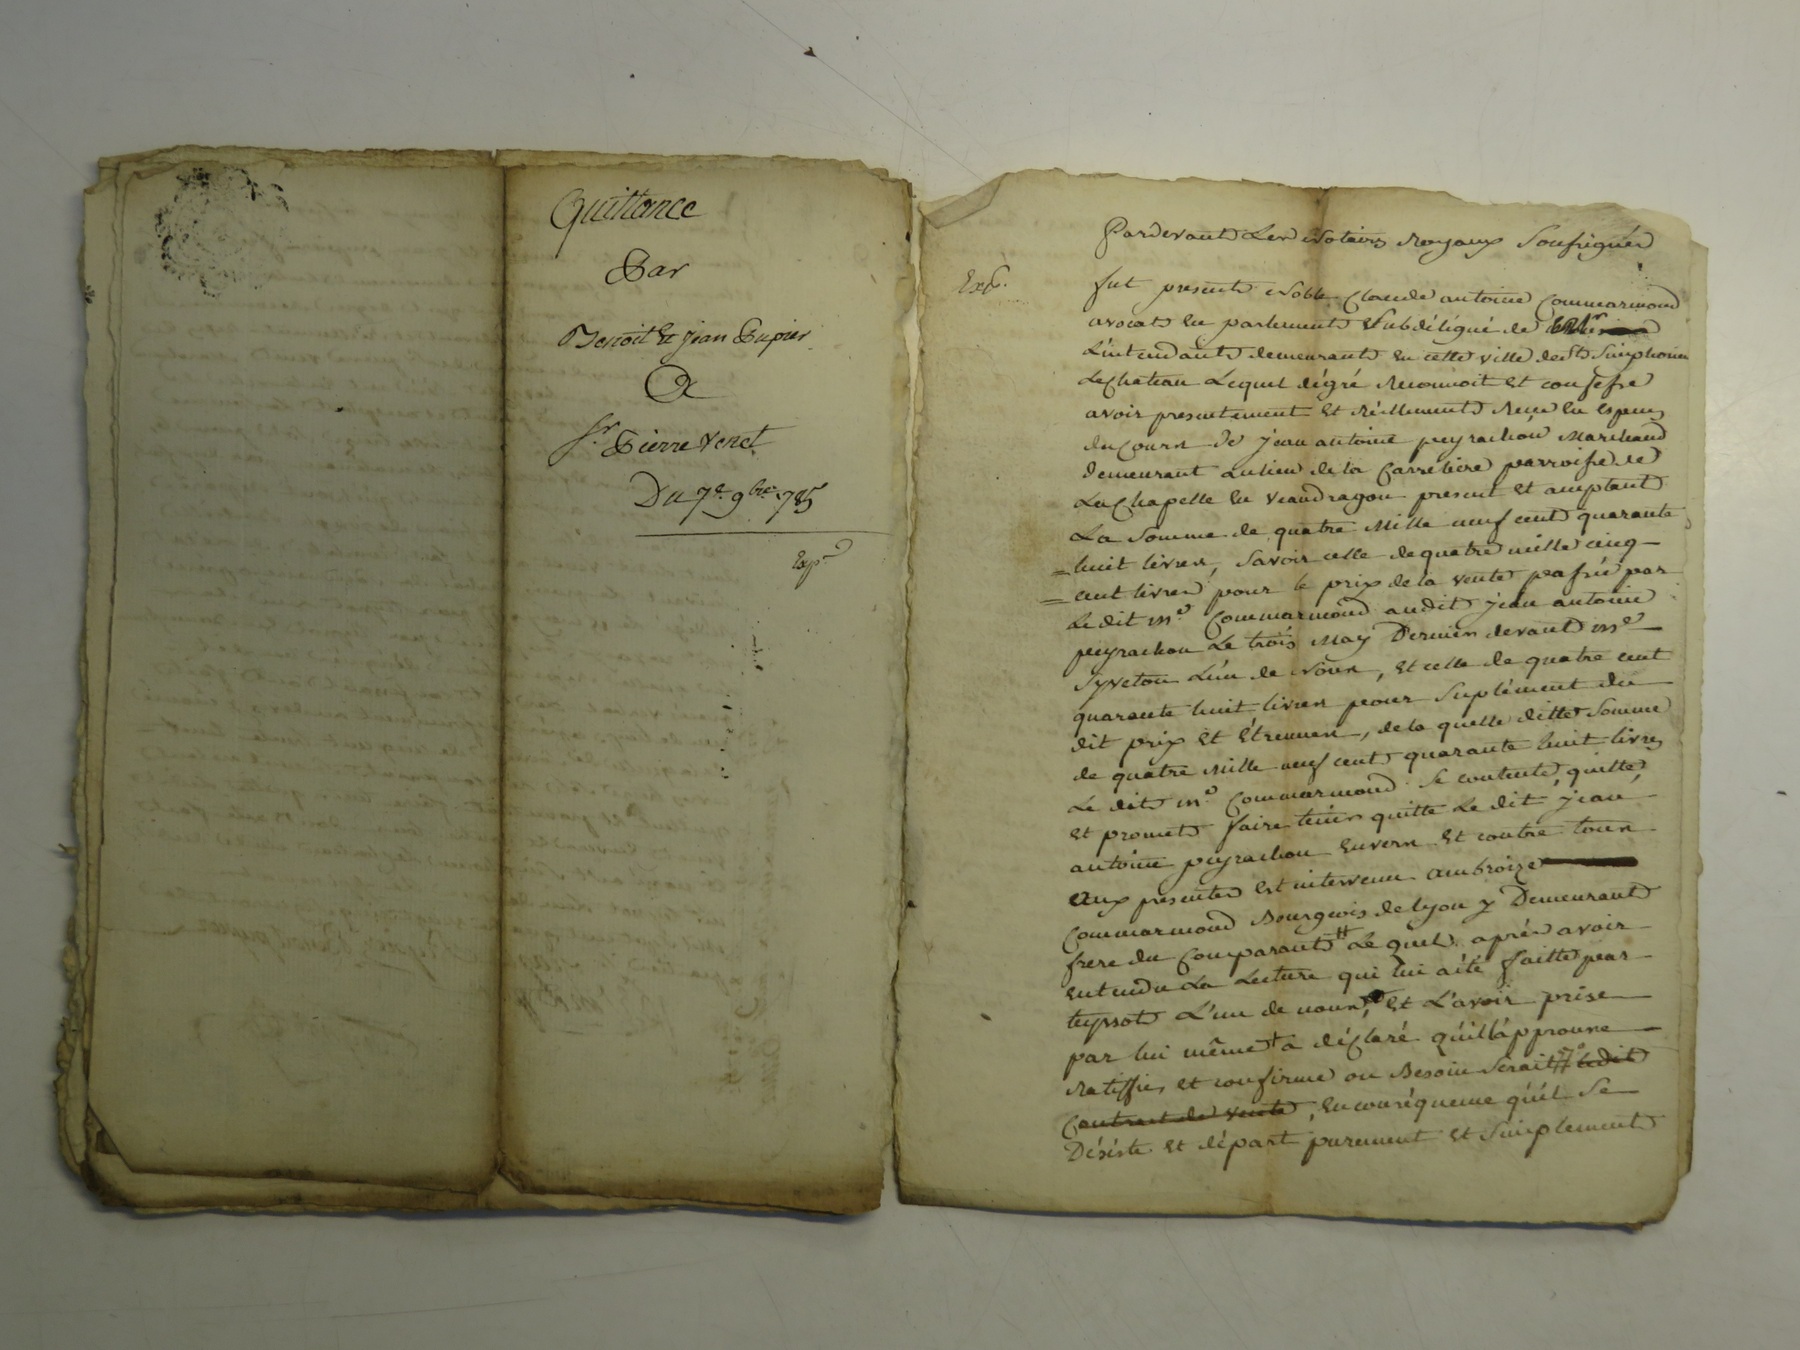 Quittance
Par
Benoit & jean Pupier
A
Sr. Pierre Venet
Du 7e. 9bre. 785
Exp.on
Pardevant Les Notaires Royaux Soussignés
Exp.
fut present Noble Claude antoine Commarmond
avocat En parlement Subdélégué de
L'intendant demeurant En cette ville de St. Simphorien
LeChateau Lequel dégré Reconnoit Et confesse
avoir presentement Et Réellement Reçu En especes
du Cours de jean antoine peyrachon Marchand
demeurant au lieu de la Carreliere parroisse de
La Chapelle En Veaudragon present Et acceptant
La Somme de quatre Mille neuf cent quarante
=huit livres, Savoir celle de quatre mille cinq
=cent livres pour le prix de la vente passée par
Le dit me. Commarmond audit jean antoine
peyrachon Le trois May Dernier devant me.
Syveton L'un de Nous, Et celle de quatre cent
quarante huit livres pour Suplément du
dit prix Et Etrennes, de la quelle ditte Somme
de quatre Mille neuf cent quarante huit livres
Le dit me. Commarmond Se contente, quitte,
Et promet faire tenir quitte Le dit jean
antoine peyrachon Envers Et contre tous
Aux presentes Est intervenu ambroize
Commarmond Bourgeois de Lyon y Demeurant
frere du Comparant # Le quel après avoir
Entendu La Lecture qui lui a été faitte par
teyssot L'un de nous, Et L'avoir prise
par lui même + a déclaré qu'il approuve
Ratiffie, et confirme ou Besoin Serait # ledit
Contrat de vente, En conséquence qu'il Se
Désiste Et départ purement Et Simplement